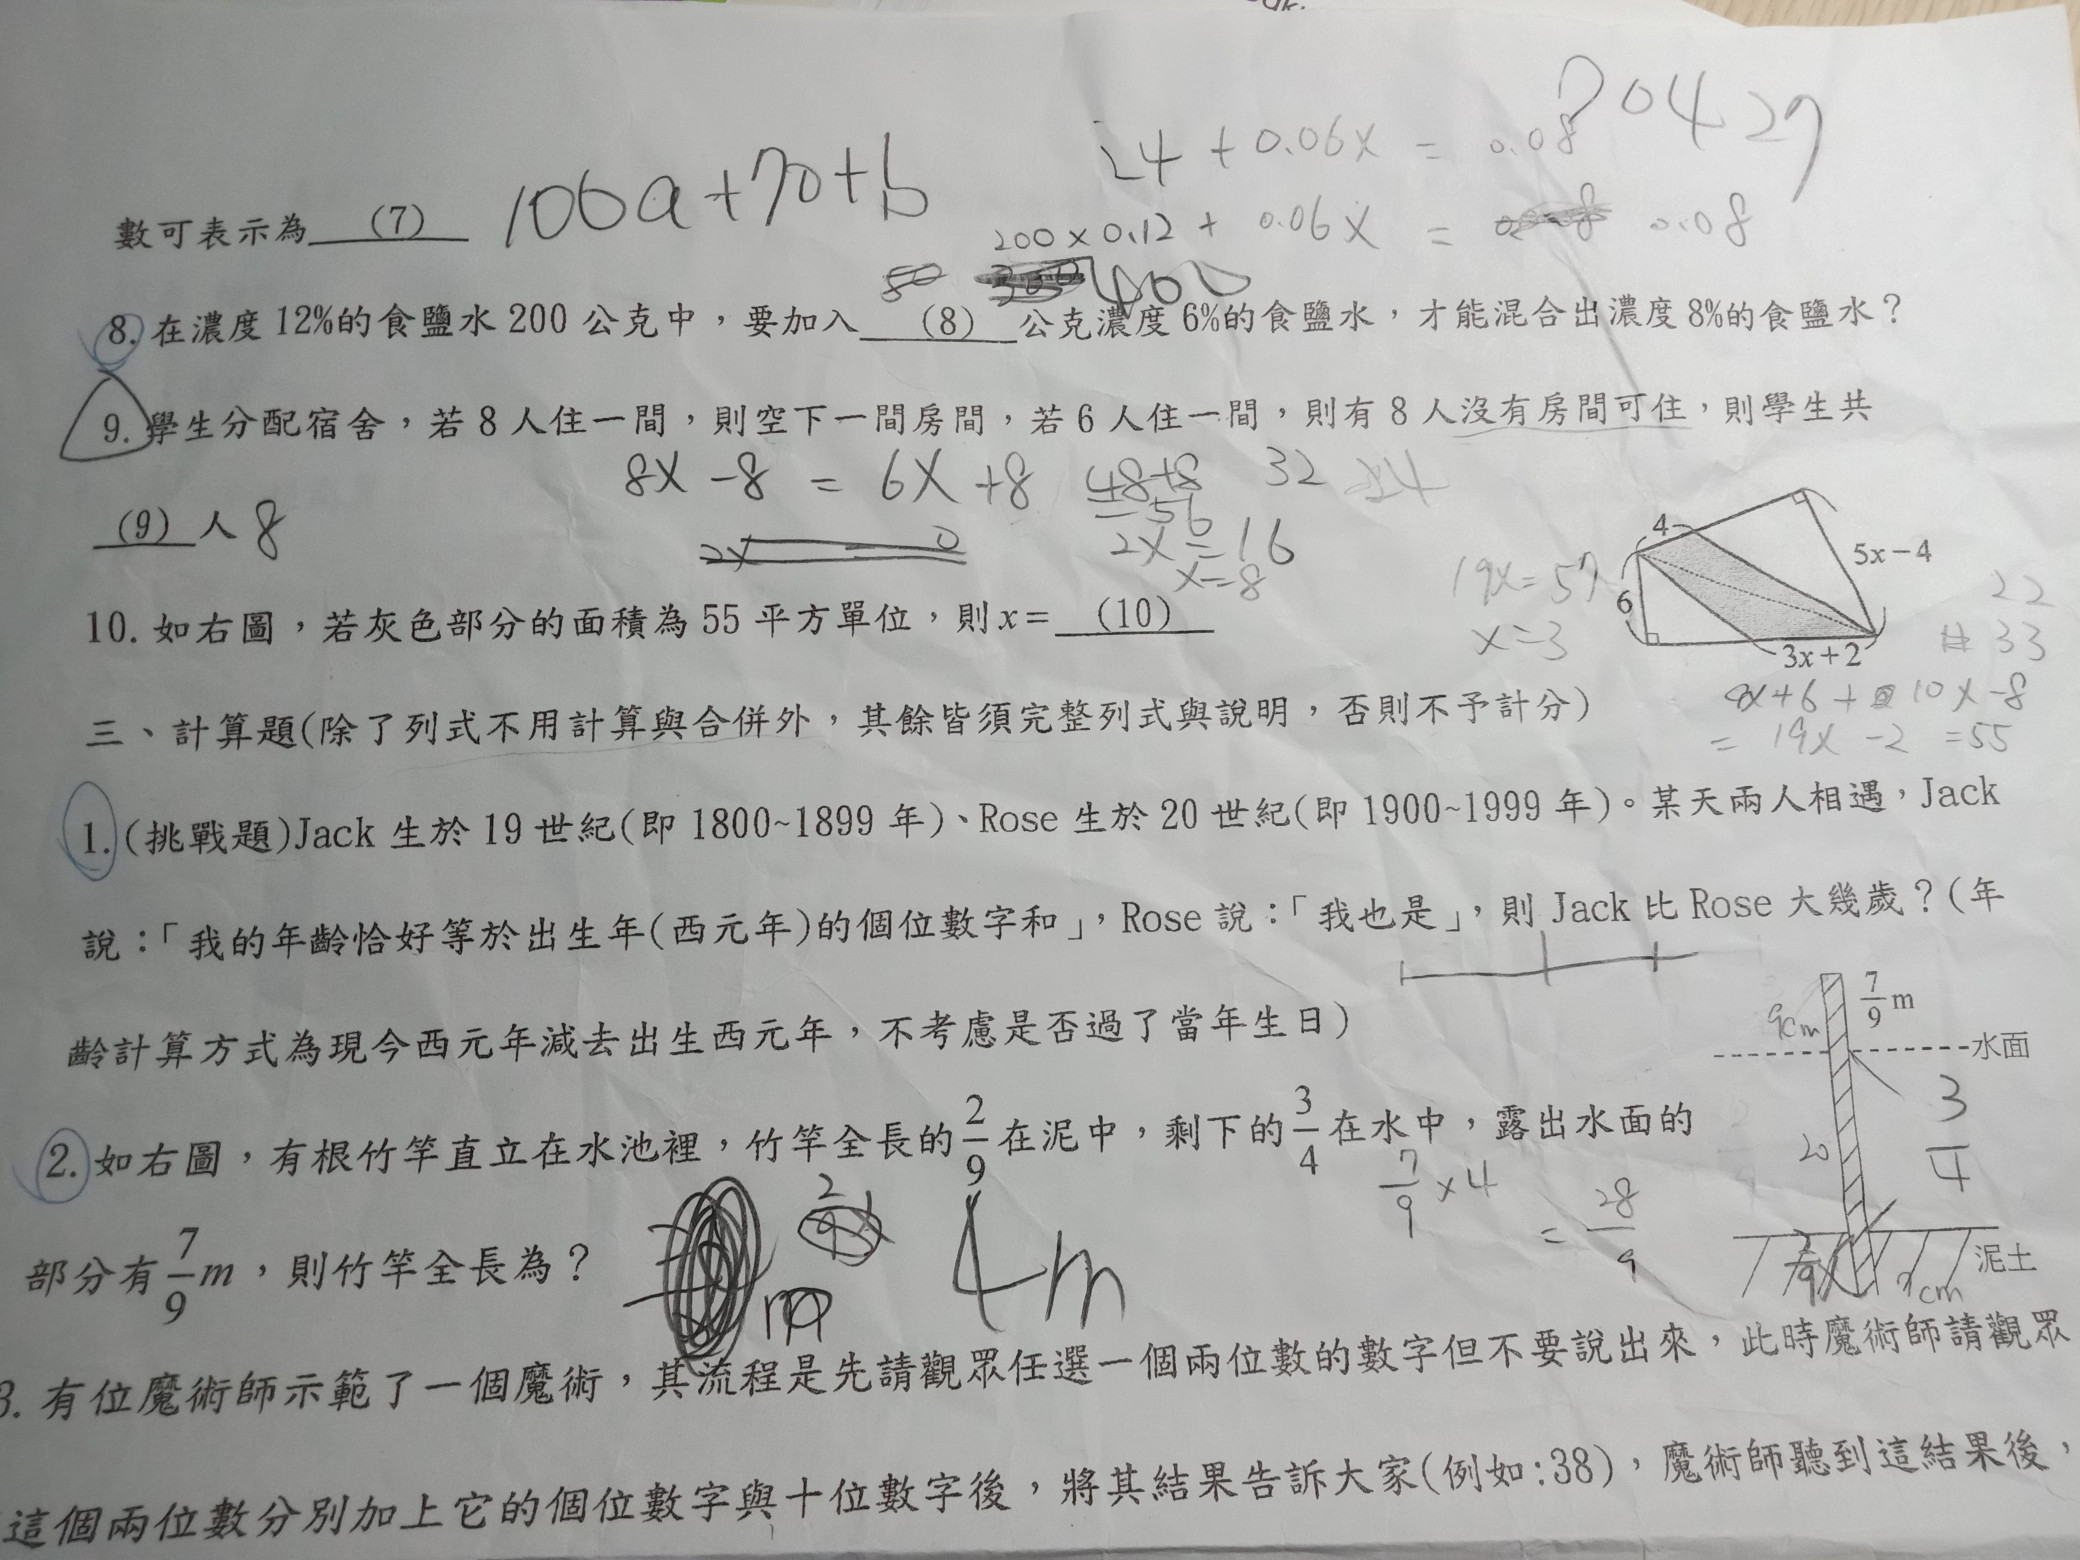 24 + 0.06x = 0.08
數可表示為 (7) 100a+70+b
200 x 0.12 + 0.06x = 0.08
400
8. 在濃度 12%的食鹽水 200 公克中，要加入 (8) 公克濃度 6%的食鹽水，才能混合出濃度 8%的食鹽水？
9. 學生分配宿舍，若 8 人住一間，則空下一間房間，若 6 人住一間，則有 8 人沒有房間可住，則學生共
8x - 8 = 6x + 8 48+8 32 24
= 56
(9) 人 8
2x = 16
x = 8
4
5x-4
6
3x+2
19x = 57
x = 3
22
33
10. 如右圖，若灰色部分的面積為 55 平方單位，則 x= (10)
9x+6 + 10x-8
= 19x - 2 = 55
三、計算題(除了列式不用計算與合併外，其餘皆須完整列式與說明，否則不予計分)
1. (挑戰題)Jack 生於 19 世紀(即 1800~1899 年)、Rose 生於 20 世紀(即 1900~1999 年)。某天兩人相遇，Jack
說：「我的年齡恰好等於出生年(西元年)的個位數字和」，Rose 說：「我也是」，則 Jack 比 Rose 大幾歲？(年
齡計算方式為現今西元年減去出生西元年，不考慮是否過了當年生日)
7/9 m
9cm
水面
3/4
20
泥土
cm
2. 如右圖，有根竹竿直立在水池裡，竹竿全長的 2/9 在泥中，剩下的 3/4 在水中，露出水面的
7/9 x 4 = 28/9
部分有 7/9 m，則竹竿全長為？
4m
3. 有位魔術師示範了一個魔術，其流程是先請觀眾任選一個兩位數的數字但不要說出來，此時魔術師請觀眾
這個兩位數分別加上它的個位數字與十位數字後，將其結果告訴大家(例如:38)，魔術師聽到這結果後，